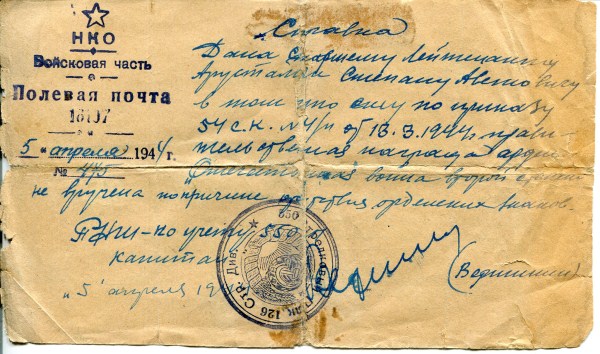 НКО
Войсковая часть
Полевая почта
18107
„5" апреля 1944 г.
№
Справка
Дана Старшему Лейтенанту
Степану
в том что ему по приказу
54 с.к. №4/н от 13.3.1944г. прави-
тельственная награда орден
Отечественная война второй степени
не вручена по причине орденских знаков.
ПНШ-по учету 550
капитан
„5" апреля
126 Стр. Див.
550